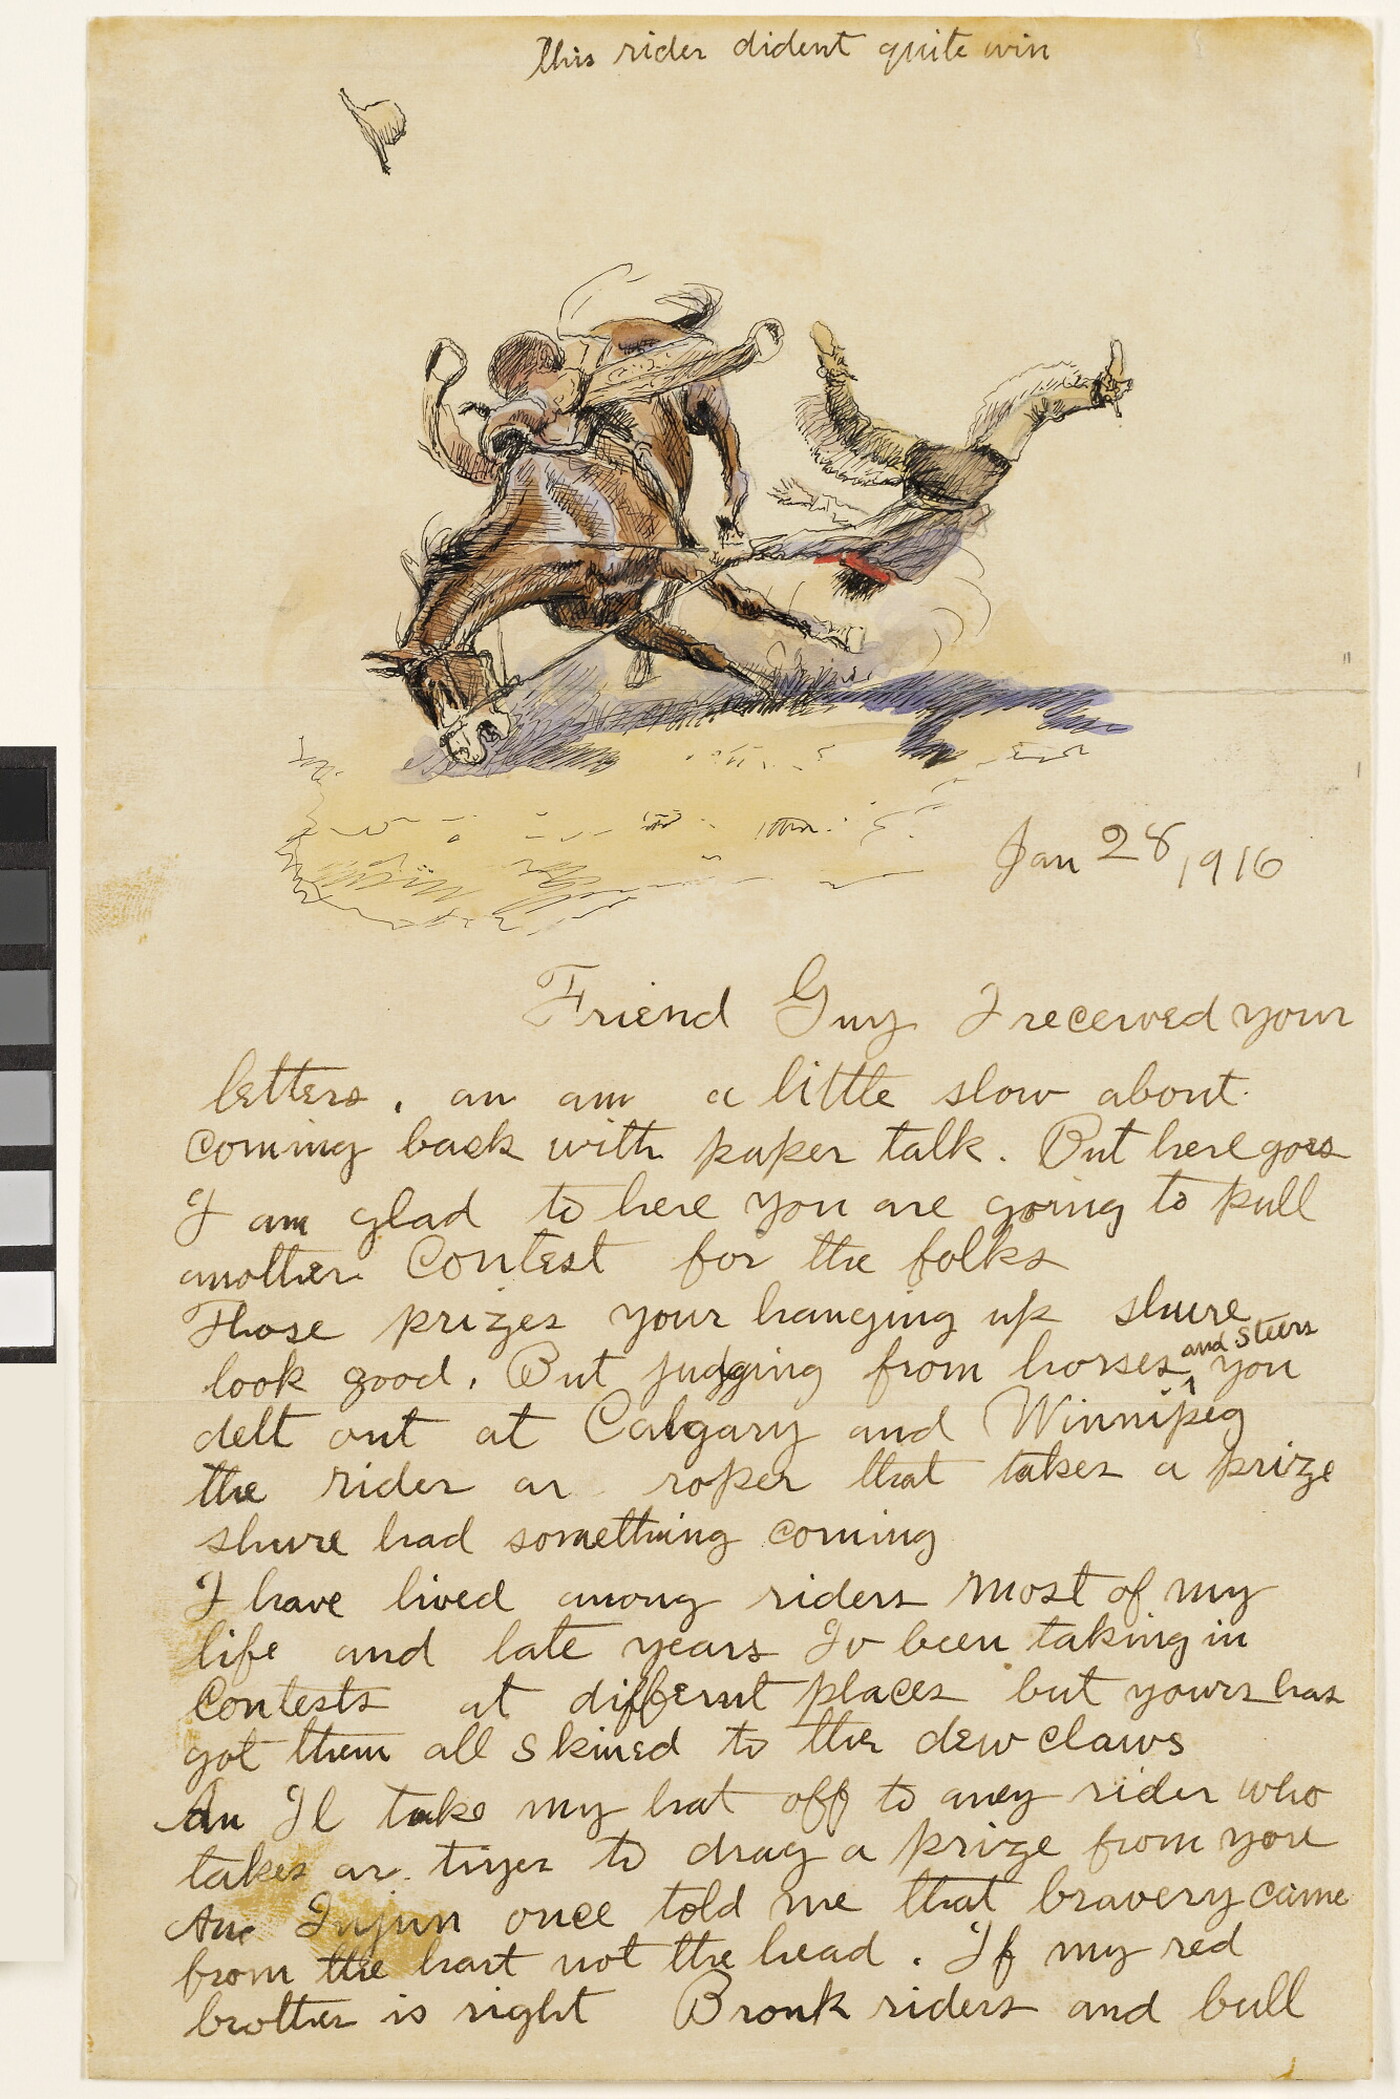 This rider dident quite win
Jan 28, 1916
Friend Guy I received your
letters, an am a little slow about
coming back with paper talk. But here goes
I am glad to here you are going to pull
another Contest for the folks
Those prizes your hanging up shure
look good. But judging from horses and Steers you
delt out at Calgary and Winnipeg
the rider or roper that takes a prize
shure had something coming
I have lived among riders most of my
life and late years Iv been taking in
Contests at differnt places but yours has
got them all skined to the dew claws
An Il take my hat off to aney rider who
takes or tryes to drag a prize from you
An Injun once told me that bravery came
from the hart not the head. If my red
brother is right Bronk riders and bull